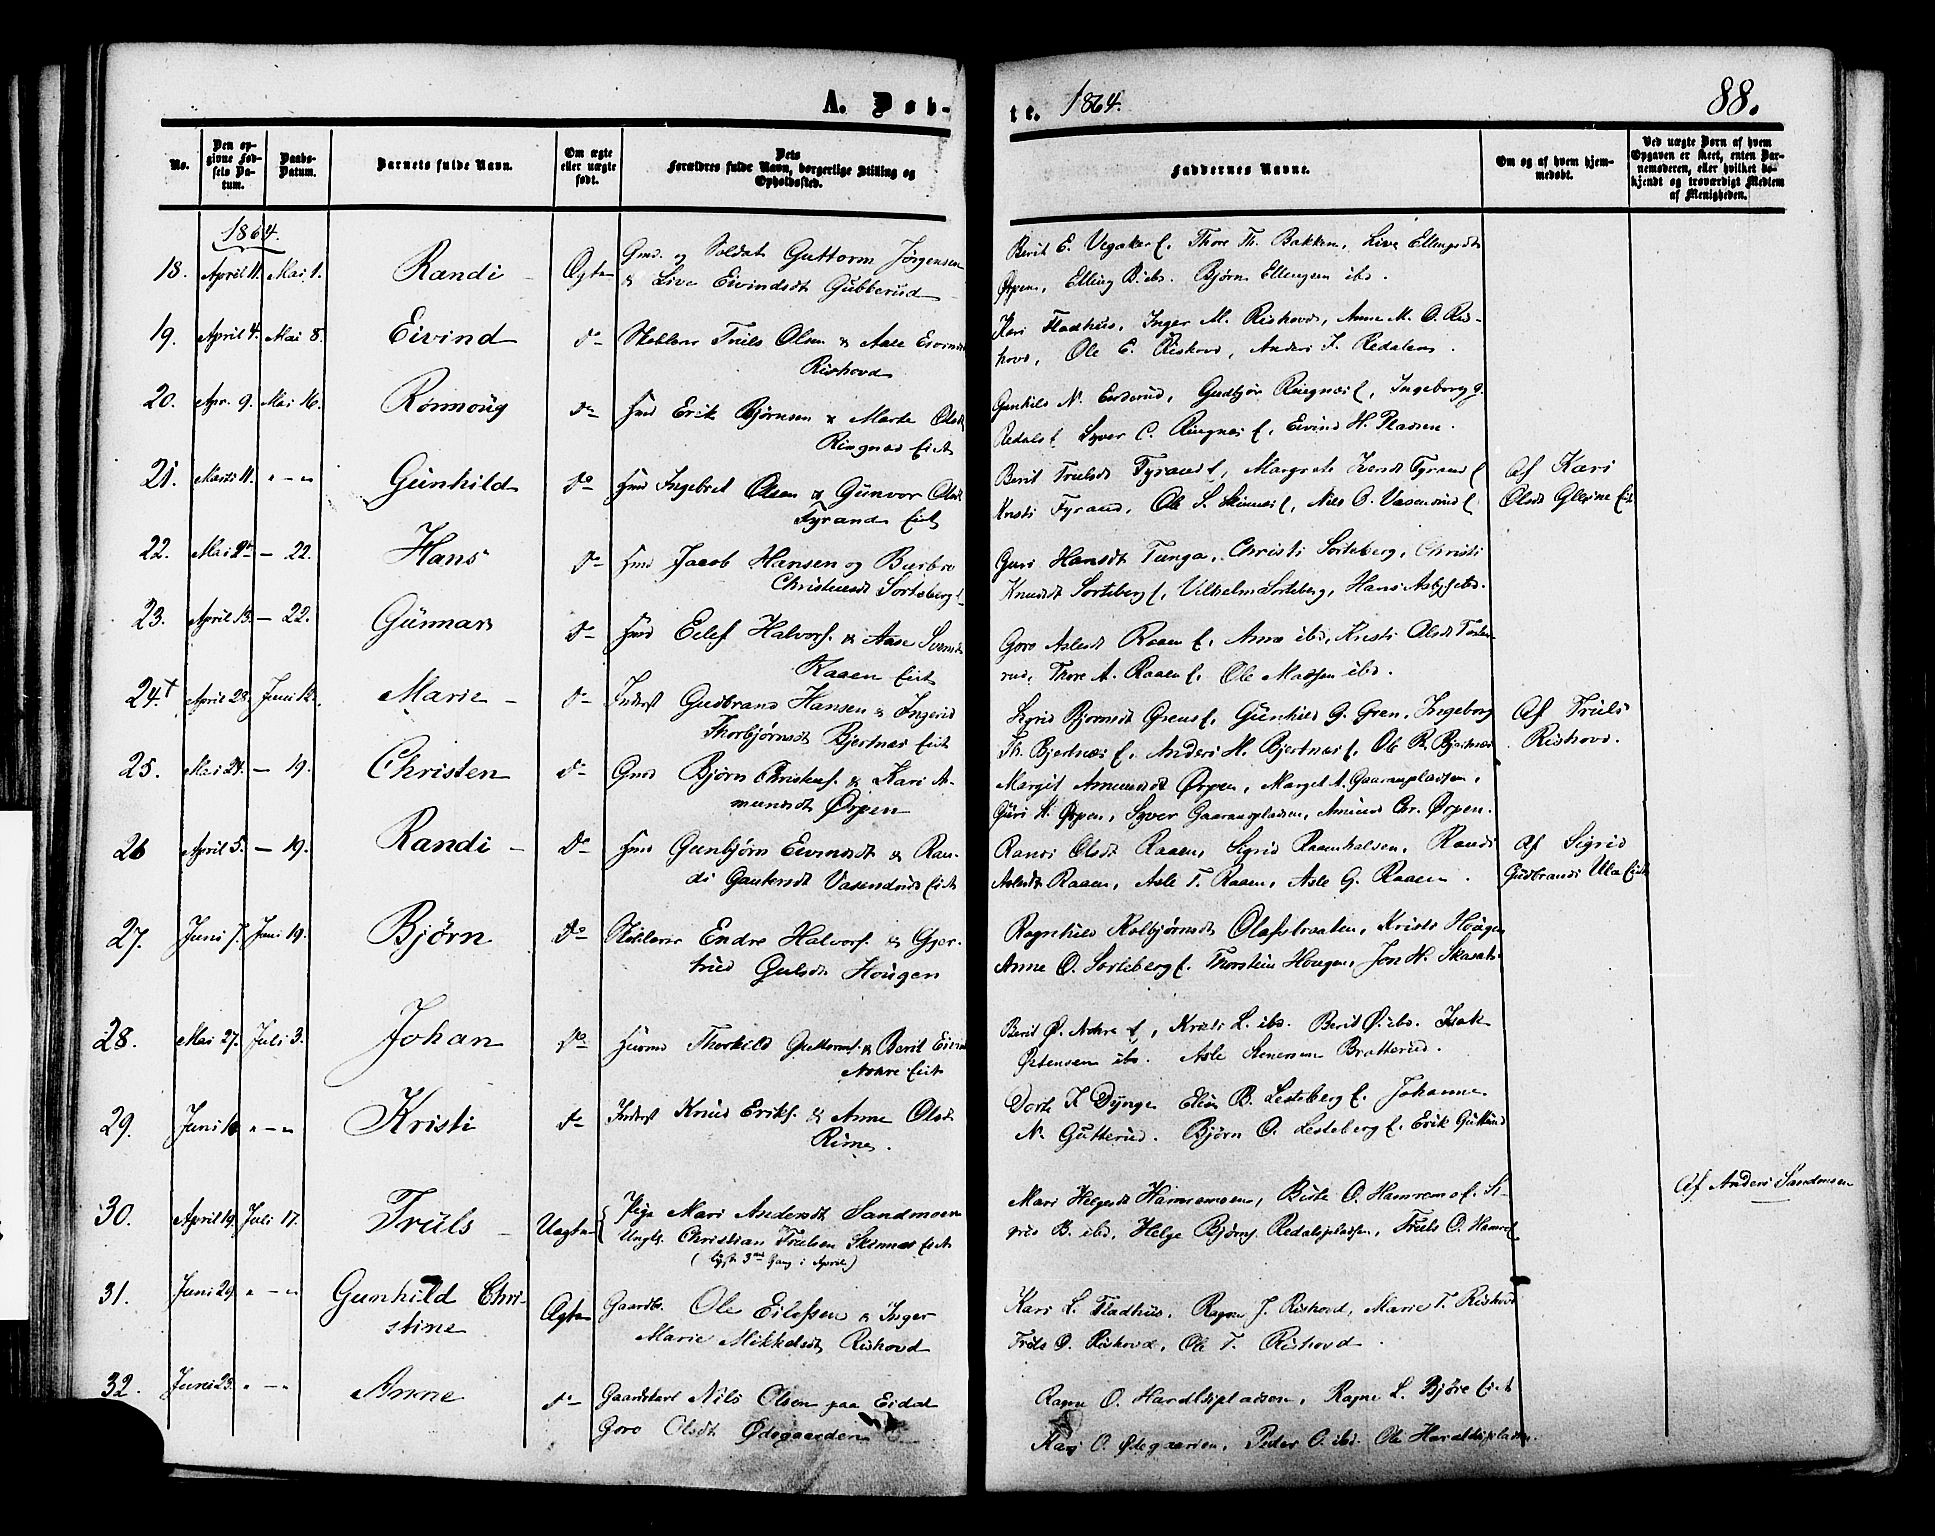 A. Døb-
te. 1864. 88.
No.
Den op-
givne Fød-
sels Da-
tum.
Daabs-
Datum.
Barnets fulde Navn.
Om ægte
eller uægte
født.
Dets
Forældres fulde Navn, borgerlige Stilling og
Opholdssted.
Faddernes Navne.
Om og af hvem hjem-
medøbt.
Ved uægte Born af hvem
Opgaven er skeet, enten Bar-
nemoderen, eller hvilket be-
kjendt og troværdigt Medlem
af Menigheden.
1864.
18. April 11. Mai 1. Randi Ægte Gmd. og Soldat Guttorm Jørgensen
& Live Eivindsdt Gubberud
Berit E. Vegaker f. Thore Th. Bakken, Live Ellingsdt
Ørpen, Elling B. ibd. Bjørn Ellingsen ibd.
19. April 4. Mai 8. Eivind do Skolelærer Truls Olsen & Aase Eivindsdt
Rishovd
Kari Fladhus, Inger M. Rishovd, Anne M. O. Ris-
hovd, Ole E. Rishovd, Anders Redalen.
20. Apr. 9. Mai 16. Rønnoug do Hmd Erik Bjørnsen & Marte Olsdt
Ringnæs Eiet
Gunhild N. Enderud, Gudbjør Ringnæs f, Ingeborg G.
Redals f Syver C. Ringnæs f, Eivind H. Pladsen.
21. Marts 11. " - " Gunhild do Hmd Ingebret Olsen & Gunvor Olsdt
Tyrand Eiet
Berit Trulsdt Tyrand f, Margrete Tyrand f
Kristi Tyrand, Ole S. Skinnæs f, Nils O. Vasendrud f
Af Kari
Olsdt Eiet
22. Mai - 22. Hans do Hmd Jacob Hansen og Barbro
Christensdt Sorteberg
Guri Hansdt Tunga, Christi Sorteberg, Christi
Knudsdt Sorteberg f, Vilhelm Sorteberg, Hans ibd.
23. April 13. - 22. Gunnar do Hmd Eilef Halvors. & Aase Svendsdt
Raaen Eiet
Goro Aslesdt Raaen f, Anne ibd, Kristi Olsdt
rud, Thore A. Raaen f. Ole Madsen ibd.
24. April 28. Juni 12. Marie do Inderst Gudbrand Hansen & Ingerid
Thorbjørnsdt Bjertnæs Eiet
Sigrid Bjørnsdt Grens f, Gunhild G. Gren, Ingeborg
Th. Bjertnæs f, Anders H. Bjertnæs f, Ole R. Bjertnæs
Af Truls
Rishovd.
25. Mai 21. - 19. Christen do Gmd Bjørn Christens. & Kari A-
mundsdt Ørpen
Margit Amundsdt Ørpen, Marget A. Gaaranpladsen,
Guri K. Ørpen, Syver Gaaranpladsen, Amund Chr. Ørpen.
26 April 5. - 19. Randi do Hmd Gunbjørn Eivindsdt & Ran-
di Gautersdt Vasendrud Eiet
Randi Olsdt Raaen, Sigrid Raaenhalsen, Randi
Aslesdt Raaen, Asle T. Raaen, Asle G. Raaen.
Af Sigrid
Gudbrands Ula Eiet
27. Juni 7. Juni 19. Bjørn do Skolelærer Endre Halvors. & Gjer-
trud Gulsdt Hougen
Ragnhild Kolbjørnsdt Olafsbraaten, Kristi Hougen
Anne O. Sorteberg f. Thorstein Hougen, Jon H.
28. Mai 27. Juli 3. Johan do Huusmd Thorkild Guttorms. & Berit Eivindsdt
Nohre Eiet
Berit O. Nohre f, Kristi L. ibd. Berit O. ibd. Isak
Petersen ibd. Asle Stenersen Bratterud.
29. Juni 16 " - " Kristi do Inderst Knud Eriks. & Anne Olsdt
Rime.
Dorte K Dynge B. Lesteberg f. Johanne
N. Gutterud. Bjørn O. Lesteberg f. Erik Gutterud
30. April 19. Juli 17. Truls Uægte Pige Mari Andersdt Sandmoen
Ungk. Christian Trulsen Skinnæs Eiet
(lyst 3die Gang i April)
Mari Helgesdt Hamremoen, Birte O. Hamremo f. Si-
grid B. ibd, Helge Bjørns. Redalspladsen, Truls O. Hamre f
Af Anders Sandmoen
31. Juni 29. " - " Gunhild Chri-
stine Ægte Gaardb. Ole Eilefsen & Inger
Marie Mikkelsdt Rishovd
Kari L. Fladhus, Ragne J. Rishovd, Marie T. Rishovd
Truls O. Rishovd, Ole T. Rishovd
32. Juni 23. " - " Anne do Gaardkarl Nils Olsen paa Eidal
Goro Olsdt Ødegaarden
Ragne O. Haraldspladsen, Ragne L. Bjøre Eiet
Kari O. Ødegaarden, Peder O. ibd. Ole Haraldspladsen.